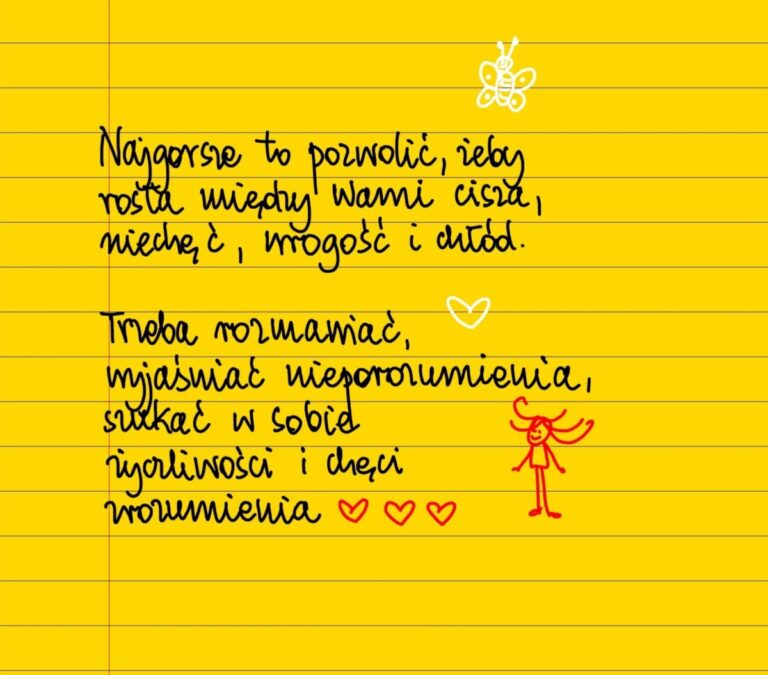 Najgorsze to pozwolić, żeby
rosła między Wami cisza,
niechęć, wrogość i chłód.
Trzeba rozmawiać,
wyjaśniać nieporozumienia,
szukać w sobie
życzliwości i chęci
zrozumienia